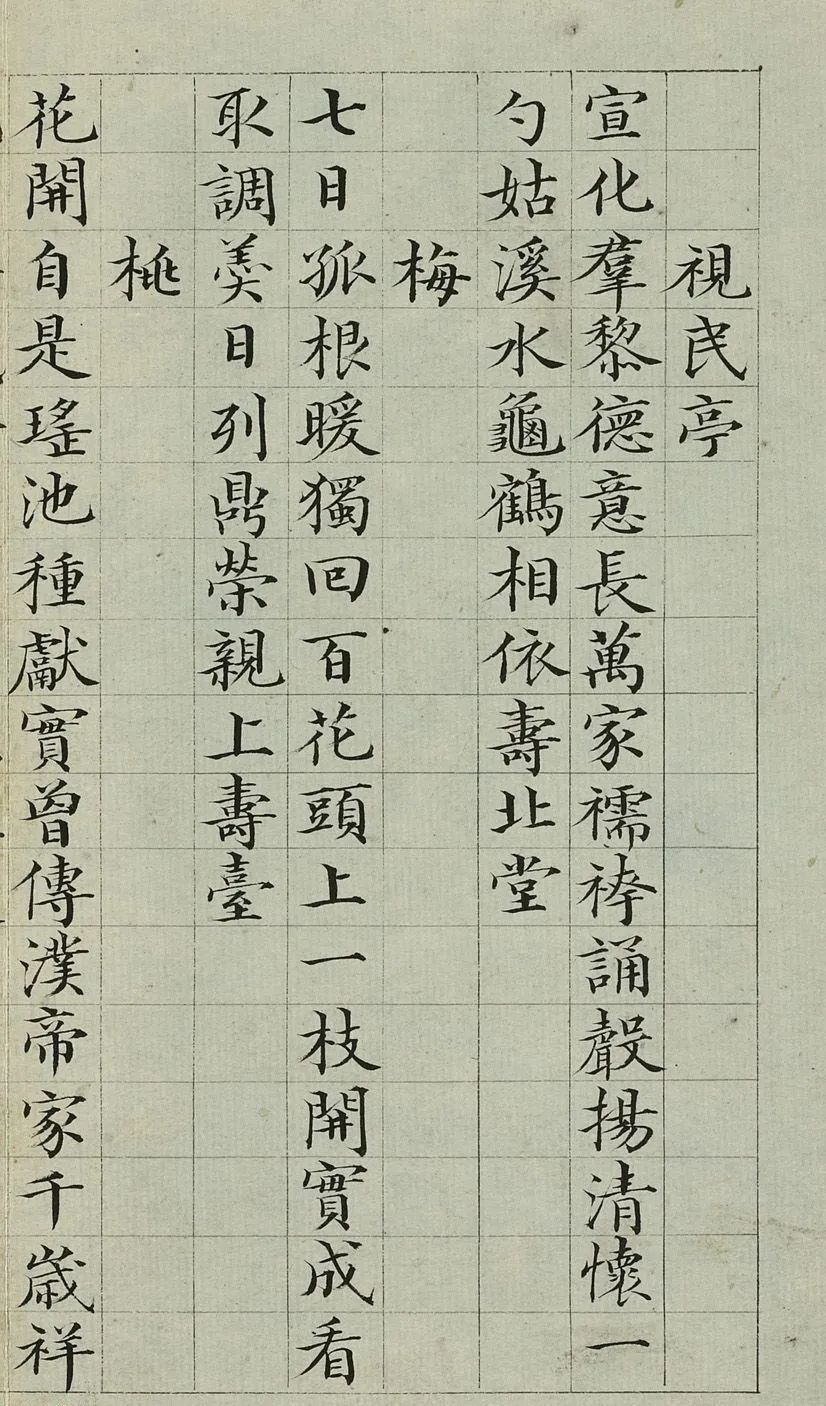 視民亭
宣化羣黎德意長萬家襦袴誦聲揚清懷一
勺姑溪水龜鶴相依壽北堂
梅
七日孤根暖獨回百花頭上一枝開實成看
取調羹日列鼎榮親上壽臺
桃
花開自是瑤池種獻實曾傳漢帝家千歲祥